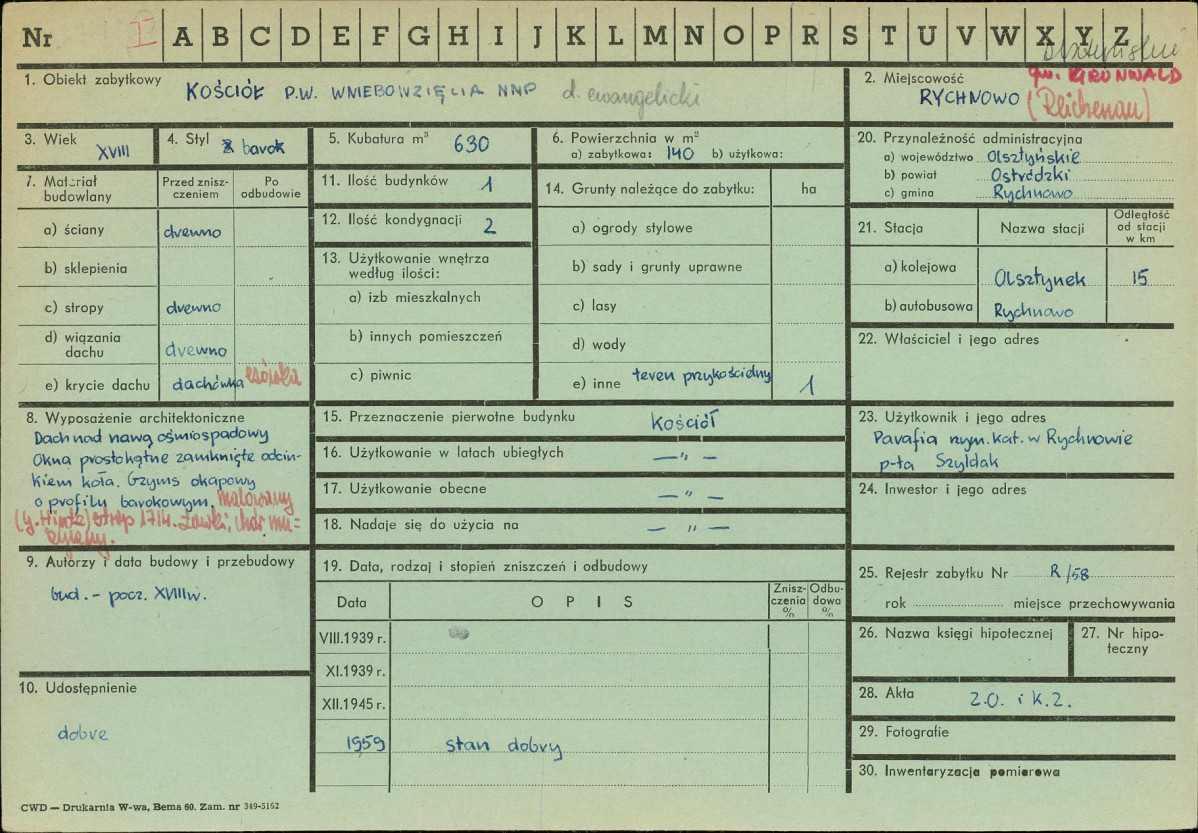 Nr I A B C D E F G H I J K L M N O P R S T U V W X Y Z
olsztyński
1. Obiekt zabytkowy
KOŚCIÓŁ P.W. WNIEBOWZIĘCIA NMP d. ewangelicki
2. Miejscowość gm. GRUNWALD
RYCHNOWO (Reichenau)
3. Wiek
XVIII
4. Styl barok
5. Kubatura m³ 630
6. Powierzchnia w m²
a) zabytkowa: 140 b) użytkowa:
7. Materiał budowlany
Przed zniszczeniem
Po odbudowie
a) ściany drewno
b) sklepienia
c) stropy drewno
d) wiązania dachu drewno
e) krycie dachu dachówka esówka
8. Wyposażenie architektoniczne
Dach nad nawą ośmiospadowy
Okna prostokątne zamknięte odcin-
kiem koła. Gzyms okapowy
o profilu barokowym. malowany
(y. Hintz) strop 1714. Ławki, chór mu=
zyczny.
9. Autorzy i data budowy i przebudowy
bud. - pocz. XVIII w.
10. Udostępnienie
dobre
11. Ilość budynków 1
12. Ilość kondygnacji 2
13. Użytkowanie wnętrza
według ilości:
a) izb mieszkalnych
b) innych pomieszczeń
c) piwnic
14. Grunty należące do zabytku: ha
a) ogrody stylowe
b) sady i grunty uprawne
c) lasy
d) wody
e) inne teren przykościelny 1
15. Przeznaczenie pierwotne budynku Kościół
16. Użytkowanie w latach ubiegłych — " —
17. Użytkowanie obecne — " —
18. Nadaje się do użycia na — " —
19. Data, rodzaj i stopień zniszczeń i odbudowy
Data
OPIS
Zniszczenia %
Odbudowa %
VIII.1939 r.
XI.1939 r.
XII.1945 r.
1959 stan dobry
20. Przynależność administracyjna
a) województwo Olsztyńskie
b) powiat Ostródzki
c) gmina Rychnowo
21. Stacja
Nazwa stacji
Odległość od stacji w km
a) kolejowa Olsztynek 15
b) autobusowa Rychnowo
22. Właściciel i jego adres
23. Użytkownik i jego adres
Parafia rzym. kat. w Rychnowie
p-ta Szyldak
24. Inwestor i jego adres
25. Rejestr zabytku Nr R/58
rok miejsce przechowywania
26. Nazwa księgi hipotecznej
27. Nr hipo-
teczny
28. Akta Z.O. i K.Z.
29. Fotografie
30. Inwentaryzacja pomiarowa
CWD — Drukarnia W-wa, Bema 60. Zam. nr 349-5162